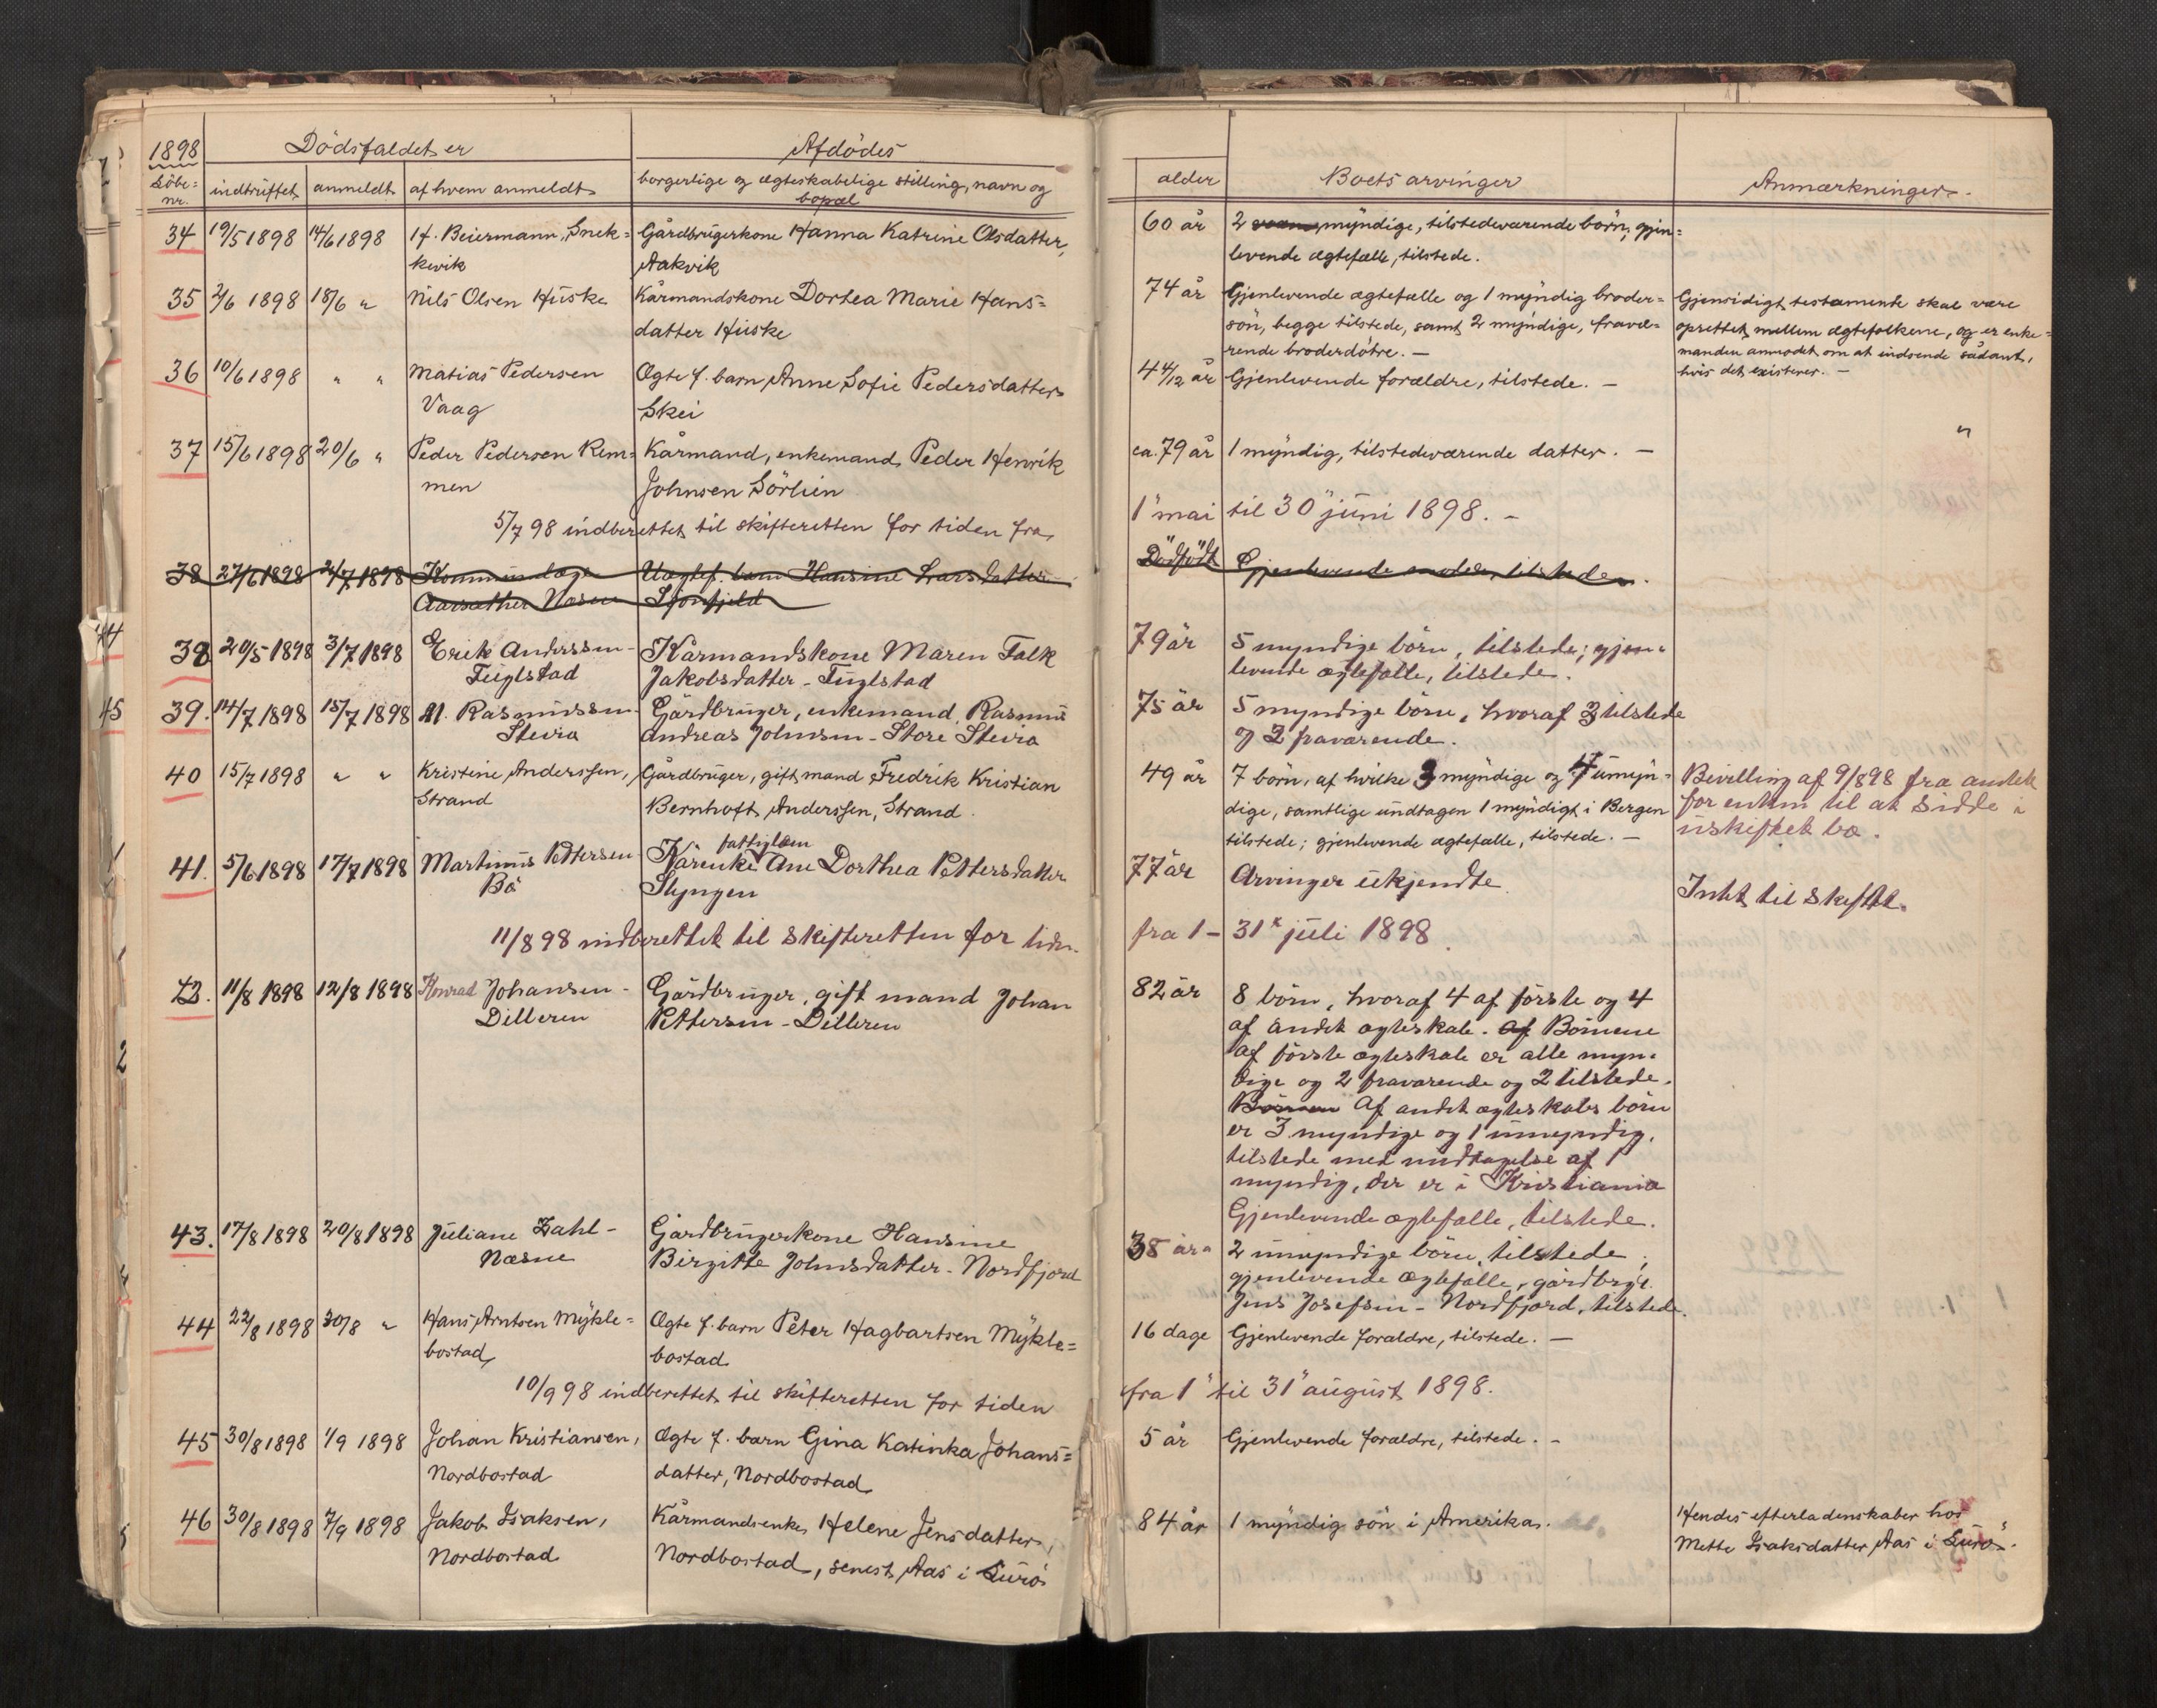 1898
Dödsfaldet er
Afdödes
Löbe-
nr.
indtruffet
anmeldt
af hvem anmeldt
borgerlige og ægteskabelige stilling, navn og
bopæl
alder
Boets arvinger
Anmærkninger.
34 19/5 1898 14/6 1898 H. Beiermann, Snek= Gårdbrugerkone Hanna Katrine Olsdatter, 60 år 2 myndige, tilstedeværende börn; gjen=
kevik Aakvik levende ægtefælle, tilstede.
35 2/6 1898 18/6 " Nils Olsen Huske Kårmandskone Dortea Marie Hans= 74 år Gjenlevende ægtefælle og 1 myndig broder= Gjensidigt testamente skal være
datter Huske sön, begge tilstede, samt 2 myndige, fravæ= oprettet mellem ægtefolkene, og er enke=
rende broderdötre. — manden anmodet om at indsende sådant,
36 10/6 1898 " " Matias Pedersen Ægte f. barn Anne Sofie Pedersdatter 4 4/12 år Gjenlevende forældre, tilstede. — hvis det existerer. —
Vaag Skei
"
37 15/6 1898 20/6 " Peder Pedersen Rem= Kårmand, enkemand Peder Henrik ca. 79 år 1 myndig, tilstedeværende datter. —
men Johnsen Sörlien
5/7 98 indberettet til skifteretten for tiden fra 1" mai til 30" juni 1898. —
38 27/6 1898 2/7 1898 Kommunelæge Uægtef. barn Hansine Larsdatter Dödfödt Gjenlevende moder, tilstede.
Aarsæther Næsne Sjonfjeld
44
38 20/5 1898 3/7 1898 Erik Anderssen - Kårmandskone Maren Falk 79 år 5 myndige börn, tilstede; gjen-
Fuglstad Jakobsdatter - Fuglstad levende ægtefælle, tilstede.
45
39. 14/7 1898 15/7 1898 A. Rasmussen Gårdbruger, enkemand, Rasmus 75 år 5 myndige börn, hvoraf 3 tilstede
Steira Andreas Johnsen - Store Steira og 2 fraværende.
40 15/7 1898 " " Kristine Anderssen, Gårdbruger, gift mand Fredrik Kristian 49 år 7 börn, af hvilke 3 myndige og 4 umyn= Bevilling af 9/8 98 fra amtet
Strand Bernhoft Anderssen, Strand. dige, samtlige undtagen 1 myndigt i Bergen for enken til at sidde i
tilstede; gjenlevende ægtefælle, tilstede. — uskiftet bo.
fattiglem
41. 5/6 1898 17/7 1898 Martinus Pettersen Kårenke Ane Dorthea Pettersdatter 77 år Arvinger ukjendte.
Bö Slyngen Intet til skifte.
11/8 98 indberettet til skifteretten for tiden fra 1 - 31" juli 1898.
42. 11/8 1898 12/8 1898 Konrad Johansen - Gårdbruger, gift mand Johan 82 år 8 börn, hvoraf 4 af förste og 4
Dilleren Pettersen - Dilleren af andet ægteskab. Af Börnene
af förste ægteskab er alle myn-
dige og 2 fraværende og 2 tilstede.
Börnene Af andet ægteskabs börn
er 3 myndige og 1 umyndig,
tilstede med undtagelse af 1
myndig, der er i Kristiania
Gjenlevende ægtefælle, tilstede.
43. 17/8 1898 20/8 1898 Juliane Zahl - Gårdbrugerkone Hansine 38 år 2 umyndige börn, tilstede;
Næsne Birgitte Johnsdatter - Nordfjord gjenlevende ægtefælle, gårdbrgr.
Jens Josefsen - Nordfjord, tilstede.
44 22/8 1898 30/8 " Hans Arntsen Mykle= Ægte f. barn Peter Hagbartsen Mykle= 16 dage Gjenlevende forældre, tilstede. —
bostad bostad
10/9 98 indberettet til skifteretten for tiden fra 1" til 31" august 1898.
45 30/8 1898 1/9 1898 Johan Kristiansen, Ægte f. barn Gina Katinka Johans= 5 år Gjenlevende forældre, tilstede. -
Nordbostad datter, Nordbostad
46 30/8 1898 7/9 1898 Jakob Isaksen, Kårmandsenke Helene Jensdatter, 84 år 1 myndig sön i Amerika. Hendes efterladenskaber hos
Nordbostad Nordbostad, senest Aas i Lurö Mette Isaksdatter Aas i Lurö.